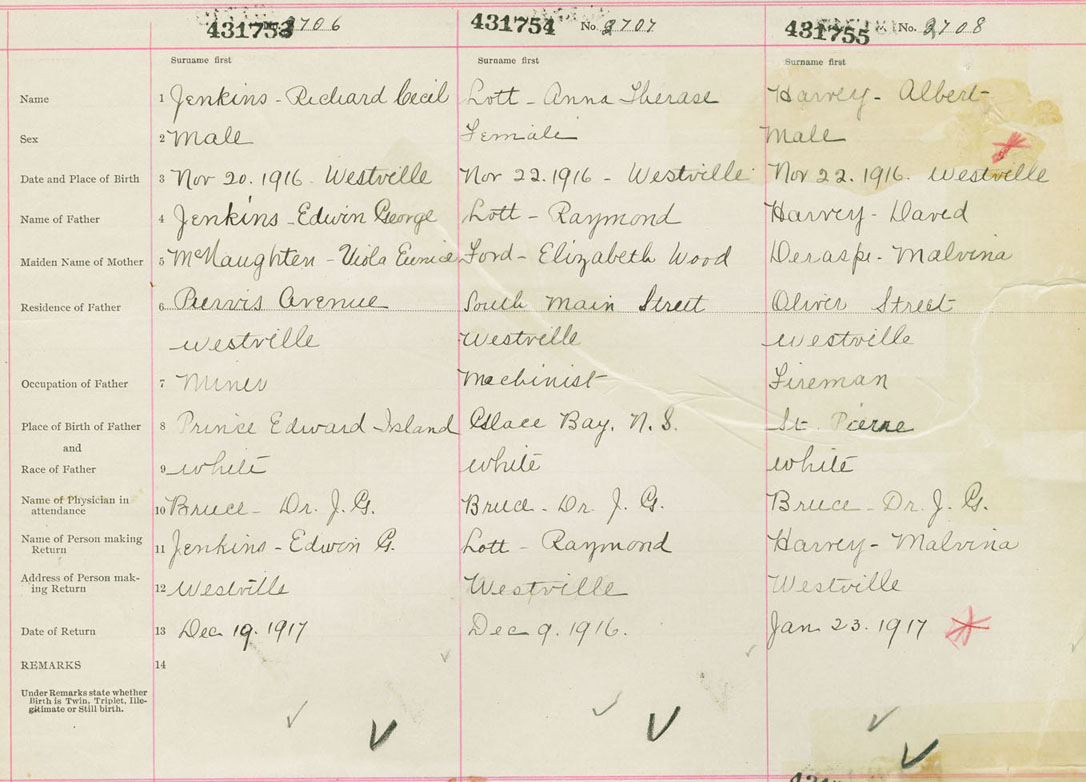 431753 2706 431754 No. 2707 431755 No. 2708
Surname first Surname first Surname first
Name 1 Jenkins - Richard Cecil Lott - Anna Therase Harvey - Albert
Sex 2 Male Female Male
Date and Place of Birth 3 Nov 20. 1916 - Westville Nov 22. 1916 - Westville Nov 22. 1916. Westville
Name of Father 4 Jenkins - Edwin George Lott - Raymond Harvey - David
Maiden Name of Mother 5 McNaughten - Viola Eunice Ford - Elizabeth Wood Deraspe - Malvina
Residence of Father 6 Purvis Avenue South Main Street Oliver Street
Westville Westville Westville
Occupation of Father 7 Miner Machinist Fireman
Place of Birth of Father 8 Prince Edward Island Glace Bay, N.S. St. Pierre
and
Race of Father 9 White White White
Name of Physician in
attendance 10 Bruce - Dr. J. G. Bruce - Dr. J. G. Bruce - Dr. J. G.
Name of Person making
Return 11 Jenkins - Edwin G. Lott - Raymond Harvey - Malvina
Address of Person mak-
ing Return 12 Westville Westville Westville
Date of Return 13 Dec 19. 1917 Dec 9. 1916. Jan 23. 1917
REMARKS 14
Under Remarks state whether
Birth is Twin, Triplet, Ille-
gitimate or Still birth.